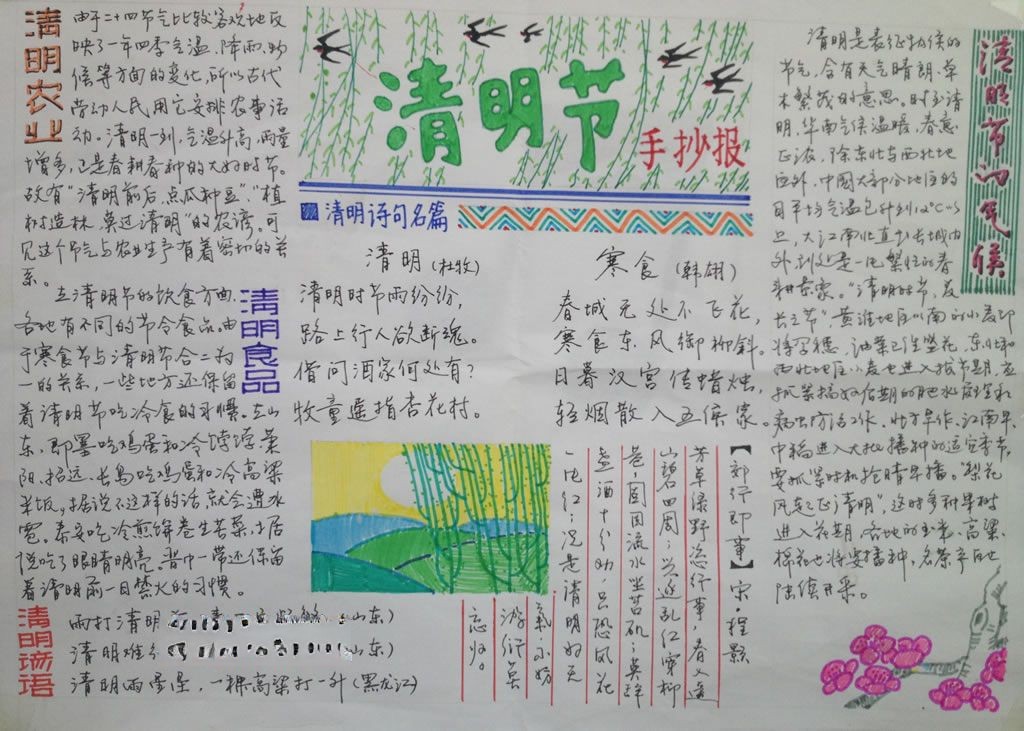 清明农业
由于二十四节气比较客观地反
映了一年四季气温、降雨、物
候等方面的变化,所以古代
劳动人民用它安排农事活
动。清明一到,气温升高,雨量
增多,正是春耕春种的大好时节。
故有“清明前后,点瓜种豆”、“植
树造林,莫过清明”的农谚。可
见这个节气与农业生产有着密切的关
系。
清明食品
在清明节的饮食方面,
各地有不同的节令食品。由
于寒食节与清明节合二为
一的关系,一些地方还保留
着清明节吃冷食的习惯。在山
东,即墨吃鸡蛋和冷饽饽,莱
阳、招远、长岛吃鸡蛋和冷高粱
米饭,据说不这样的话就会遭冰
雹。泰安吃冷煎饼卷生苦菜,据
说吃了眼睛明亮。晋中一带还保留
着清明前一日禁火的习惯。
清明谚语
雨打清明
山东)
清明难
山东)
清明雨星星,一棵高粱打一升(黑龙江)
清明节
手抄报
清明诗句名篇
清明(杜牧)
清明时节雨纷纷,
路上行人欲断魂。
借问酒家何处有?
牧童遥指杏花村。
寒食(韩翃)
春城无处不飞花,
寒食东风御柳斜。
日暮汉宫传蜡烛,
轻烟散入五侯家。
【郊行即事】宋·程颢
芳草绿野恣行事,春入遥
山碧四周;兴逐乱红穿柳
巷,固因流水坐苔矶;莫辞
盏酒十分劝,只恐风花
一片红;况是清明好天
气,不妨
游衍莫
忘归。
清明节的气候
清明是表征物候的
节气,含有天气晴朗、草
木繁茂的意思。时至清
明,华南气候温暖,春意
正浓,除东北与西北地
区外,中国大部分地区的
日平均气温已升到12℃以
上,大江南北直至长城内
外,到处是一片繁忙的春
耕景象。“清明时节,麦
长三节”,黄淮地区以南的小麦即
将孕穗,油菜已经盛花,东北和
西北地区小麦也进入拔节期,应
抓紧搞好后期的肥水管理和
病虫防治工作。北方旱作、江南早、
中稻进入大批播种的适宜季节,
要抓紧时机抢晴早播。“梨花
风起正清明”,这时多种果树
进入花期,各地的玉米、高粱、
棉花也将要播种。名茶产区也
陆续开采。